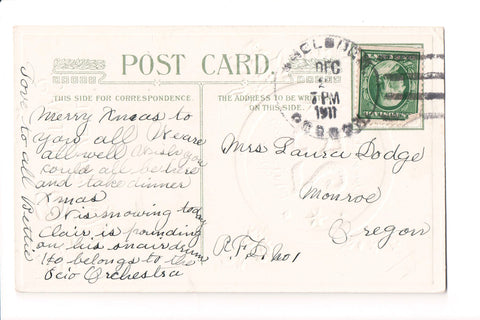 POST CARD
THIS SIDE FOR CORRESPONDENCE.
THE ADDRESS TO BE
ON THIS SIDE.
DEC
PM
1911
Merry Xmas to
you all We are
all well Wish you
could all be here
and take dinner
Xmas
It is snowing today
Clair is pounding
on his snair drum
He belongs to the
Scio Orchestra
Love to all Bettie
Mrs Laura Dodge
Monroe
Oregon
R.F.D. No 1